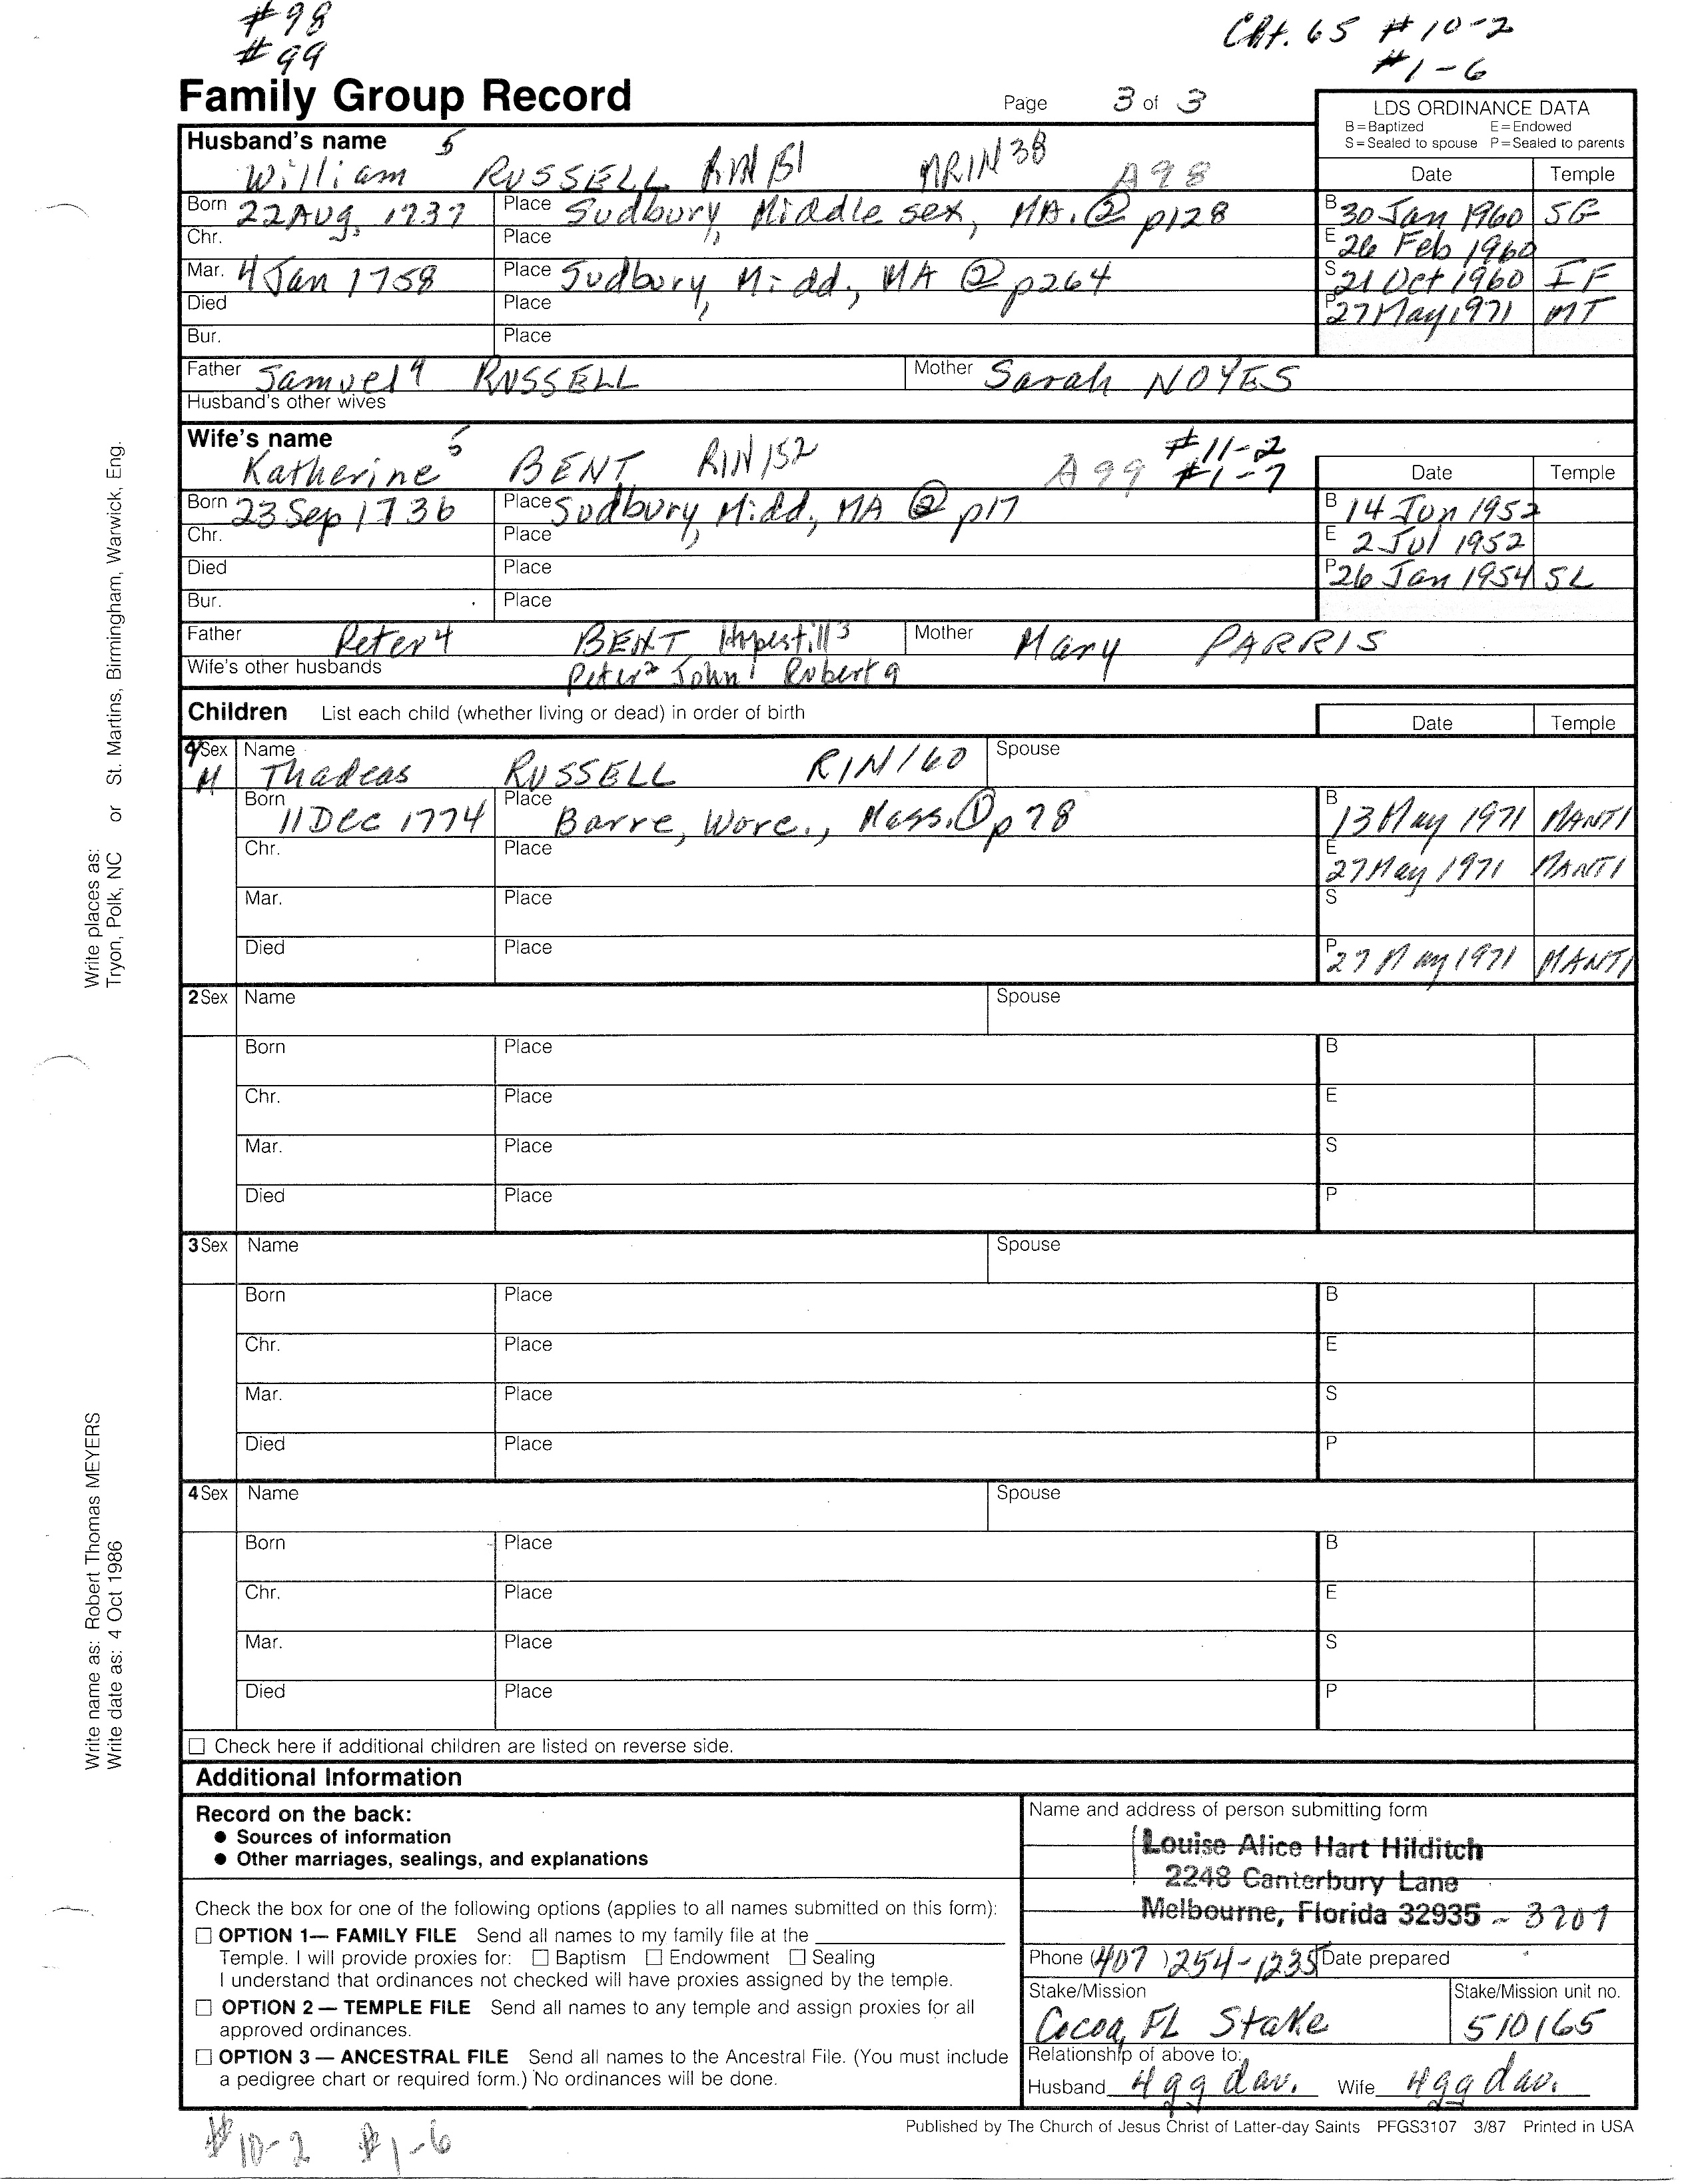 #98
#99
CAt. 65 #10-2
#1-6
Family Group Record
Page 3 of 3
LDS ORDINANCE DATA
B=Baptized E=Endowed
S=Sealed to spouse P=Sealed to parents
Husband's name
William 5 RUSSELL RIN 151 MRIN 38 A98
Date Temple
Born 22 Aug, 1737 Place Sudbury, Middlesex, MA. ② p128 B 30 Jan 1960 SG
Chr. Place E 26 Feb 1960
Mar. 4 Jan 1758 Place Sudbury, Midd., MA ② p264 S 21 Oct 1960 IF
Died Place P 27 May 1971 MT
Bur. Place
Father Samuel 4 RUSSELL Mother Sarah NOYES
Husband's other wives
Wife's name
Katherine 5 BENT RIN 152 A99 #11-2
#1-7
Date Temple
Born 23 Sep 1736 Place Sudbury, Midd., MA ② p17 B 14 Jun 1952
Chr. Place E 2 Jul 1952
Died Place P 26 Jan 1954 SL
Bur. Place
Father Peter 4 BENT Hopestill 3 Mother Mary PARRIS
Wife's other husbands Peter 2 John 1 Robert a
Children List each child (whether living or dead) in order of birth Date Temple
9 Sex Name Spouse
M Thadeas RUSSELL RIN 160
Born 11 Dec 1774 Place Barre, Worc., Mass. ① p78 B 13 May 1971 MANTI
Chr. Place E 27 May 1971 MANTI
Mar. Place S
Died Place P 27 May 1971 MANTI
2 Sex Name Spouse
Born Place B
Chr. Place E
Mar. Place S
Died Place P
3 Sex Name Spouse
Born Place B
Chr. Place E
Mar. Place S
Died Place P
4 Sex Name Spouse
Born Place B
Chr. Place E
Mar. Place S
Died Place P
☐ Check here if additional children are listed on reverse side.
Additional Information
Record on the back:
● Sources of information
● Other marriages, sealings, and explanations
Check the box for one of the following options (applies to all names submitted on this form):
☐ OPTION 1— FAMILY FILE Send all names to my family file at the
Temple. I will provide proxies for: ☐ Baptism ☐ Endowment ☐ Sealing
I understand that ordinances not checked will have proxies assigned by the temple.
☐ OPTION 2 — TEMPLE FILE Send all names to any temple and assign proxies for all
approved ordinances.
☐ OPTION 3 — ANCESTRAL FILE Send all names to the Ancestral File. (You must include
a pedigree chart or required form.) No ordinances will be done.
Name and address of person submitting form
Louise Alice Hart Hilditch
2248 Canterbury Lane
Melbourne, Florida 32935 - 3207
Phone (407) 254-1235 Date prepared
Stake/Mission Stake/Mission unit no.
Cocoa, FL Stake 510165
Relationship of above to:
Husband 4 gg dau. Wife 4gg dau.
Published by The Church of Jesus Christ of Latter-day Saints PFGS3107 3/87 Printed in USA
#10-2 #1-6
Write places as: Tryon, Polk, NC or St. Martins, Birmingham, Warwick, Eng.
Write name as: Robert Thomas MEYERS
Write date as: 4 Oct 1986